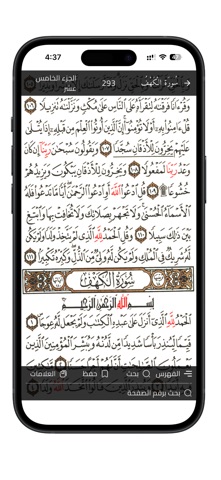 4:37
سورة الكهف
293
الجزء الخامس عشر
وَقُرْءَانًا فَرَقْنَٰهُ لِتَقْرَأَهُۥ عَلَى ٱلنَّاسِ عَلَىٰ مُكْثٍ وَنَزَّلْنَٰهُ تَنزِيلًا ١٠٦
قُلْ ءَامِنُوا۟ بِهِۦٓ أَوْ لَا تُؤْمِنُوٓا۟ إِنَّ ٱلَّذِينَ أُوتُوا۟ ٱلْعِلْمَ مِن قَبْلِهِۦٓ إِذَا يُتْلَىٰ
عَلَيْهِمْ يَخِرُّونَ لِلْأَذْقَانِ سُجَّدًا ١٠٧ وَيَقُولُونَ سُبْحَٰنَ رَبِّنَآ إِن كَانَ
وَعْدُ رَبِّنَا لَمَفْعُولًا ١٠٨ وَيَخِرُّونَ لِلْأَذْقَانِ يَبْكُونَ وَيَزِيدُهُمْ
خُشُوعًا ۩ ١٠٩ قُلِ ٱدْعُوا۟ ٱللَّهَ أَوِ ٱدْعُوا۟ ٱلرَّحْمَٰنَ أَيًّا مَّا تَدْعُوا۟ فَلَهُ
ٱلْأَسْمَآءُ ٱلْحُسْنَىٰ وَلَا تَجْهَرْ بِصَلَاتِكَ وَلَا تُخَافِتْ بِهَا وَٱبْتَغِ
بَيْنَ ذَٰلِكَ سَبِيلًا ١١٠ وَقُلِ ٱلْحَمْدُ لِلَّهِ ٱلَّذِى لَمْ يَتَّخِذْ وَلَدًا وَلَمْ يَكُن
لَّهُۥ شَرِيكٌ فِى ٱلْمُلْكِ وَلَمْ يَكُن لَّهُۥ وَلِىٌّ مِّنَ ٱلذُّلِّ وَكَبِّرْهُ تَكْبِيرًا ١١١
سُورَةُ الْكَهْفِ
بِسْمِ ٱللَّهِ ٱلرَّحْمَٰنِ ٱلرَّحِيمِ
ٱلْحَمْدُ لِلَّهِ ٱلَّذِىٓ أَنزَلَ عَلَىٰ عَبْدِهِ ٱلْكِتَٰبَ وَلَمْ يَجْعَل لَّهُۥ عِوَجَا ١
قَيِّمًا لِّيُنذِرَ بَأْسًا شَدِيدًا مِّن لَّدُنْهُ وَيُبَشِّرَ ٱلْمُؤْمِنِينَ ٱلَّذِينَ
الفهرس بحث حفظ العلامات
بحث برقم الصفحة